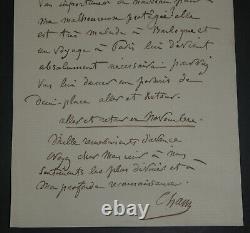 vous importuner de nouveau pour
ma malheureuse protégée elle
est très malade à Boulogne et
un voyage à Paris lui devient
absolument nécessaire pourriez
vous lui donner un permis de
demi-place aller et retour.
aller et retour en Novembre.
Mille remerciements d'avance
croyez cher Monsieur à mes
sentiments les plus dévoués et à
ma profonde reconnaissance
Cham